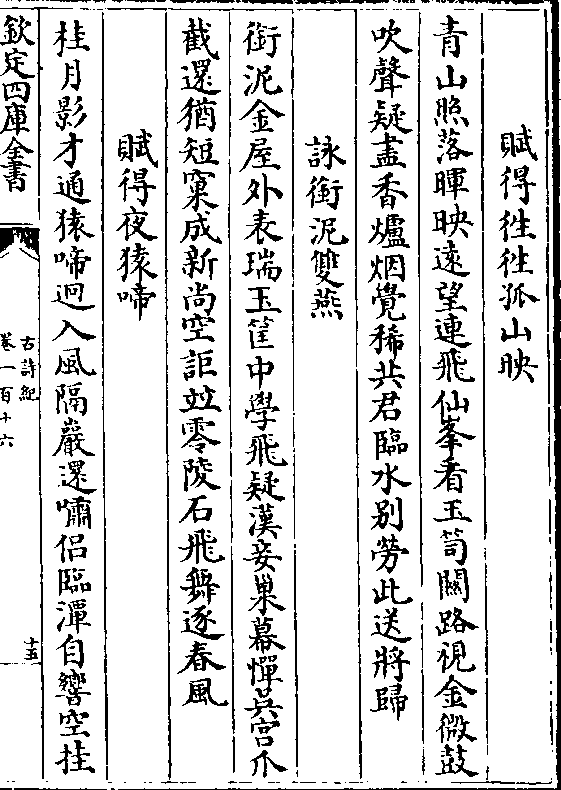 賦得徃徃孤山映
青山照落暉映遠望連飛仙峯看玉笥關路視金微鼓
吹聲疑盡香爐烟覺稀共君臨水别勞此送將歸
詠銜泥雙燕
銜泥金屋外表瑞玉筐中學飛疑漢妾巢幕憚吳宫爪
截還猶短窠成新尚空詎並零陵石飛舞逐春風
賦得夜猿啼
桂月影才通猿啼迥入風隔巖還嘯侣臨潭自響空挂
欽定四庫全書
古詩紀
卷一百十六
十五